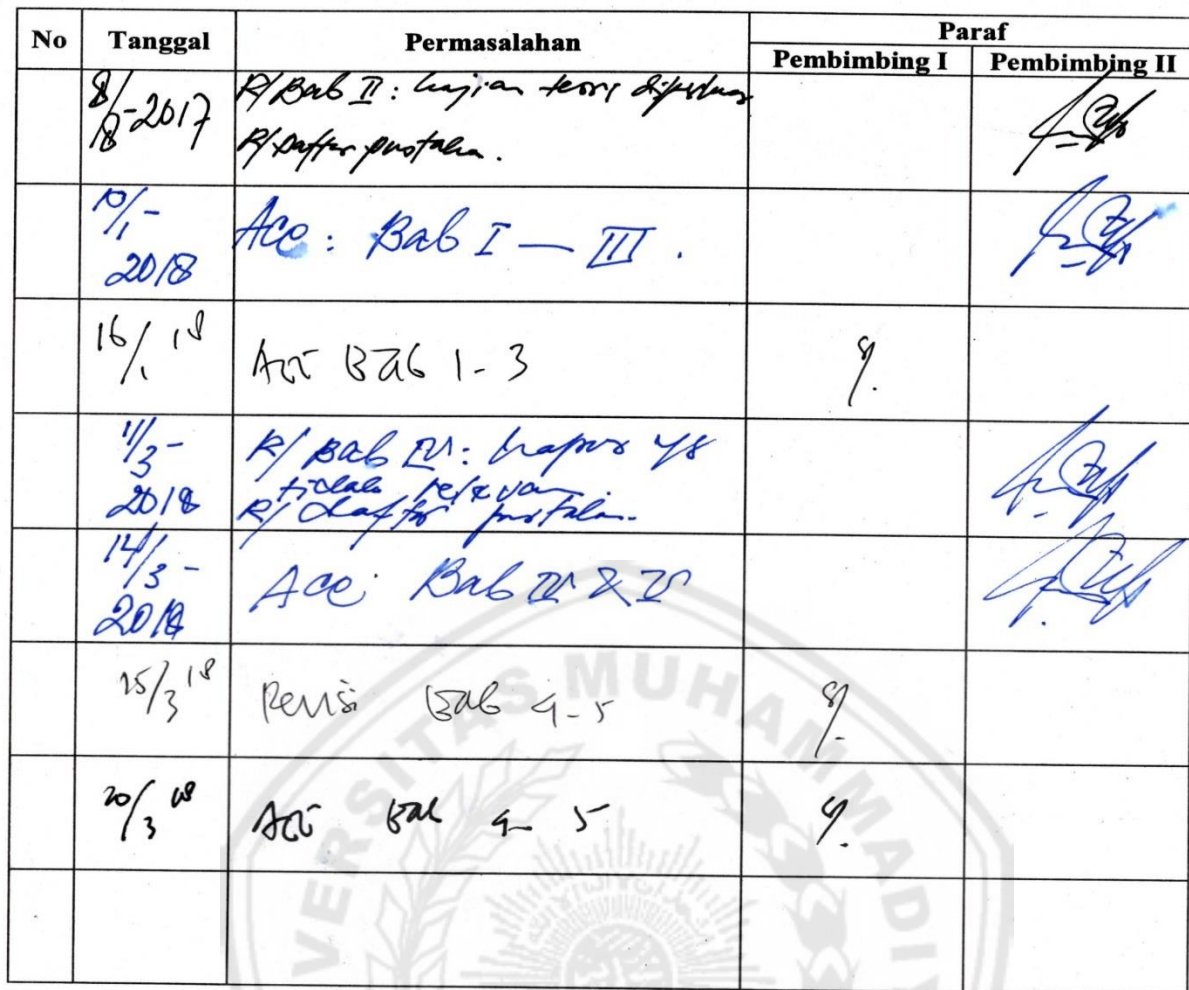 No Tanggal Permasalahan Paraf
Pembimbing I Pembimbing II
8/8-2017 R/ Bab II: kajian teori diperluas
R/ Daftar pustaka.
10/1-
2018
Acc : Bab I — III .
16/1 18 Acc Bab 1-3
11/3-
2018
R/ Bab IV: hapus yg
tidak relevan.
R/ daftar pustaka.
14/3-
2018
Acc: Bab IV & V
15/3 18 Revisi Bab 4-5
20/3 18 Acc Bab 4-5
VERSITAS MUHAMMADIY